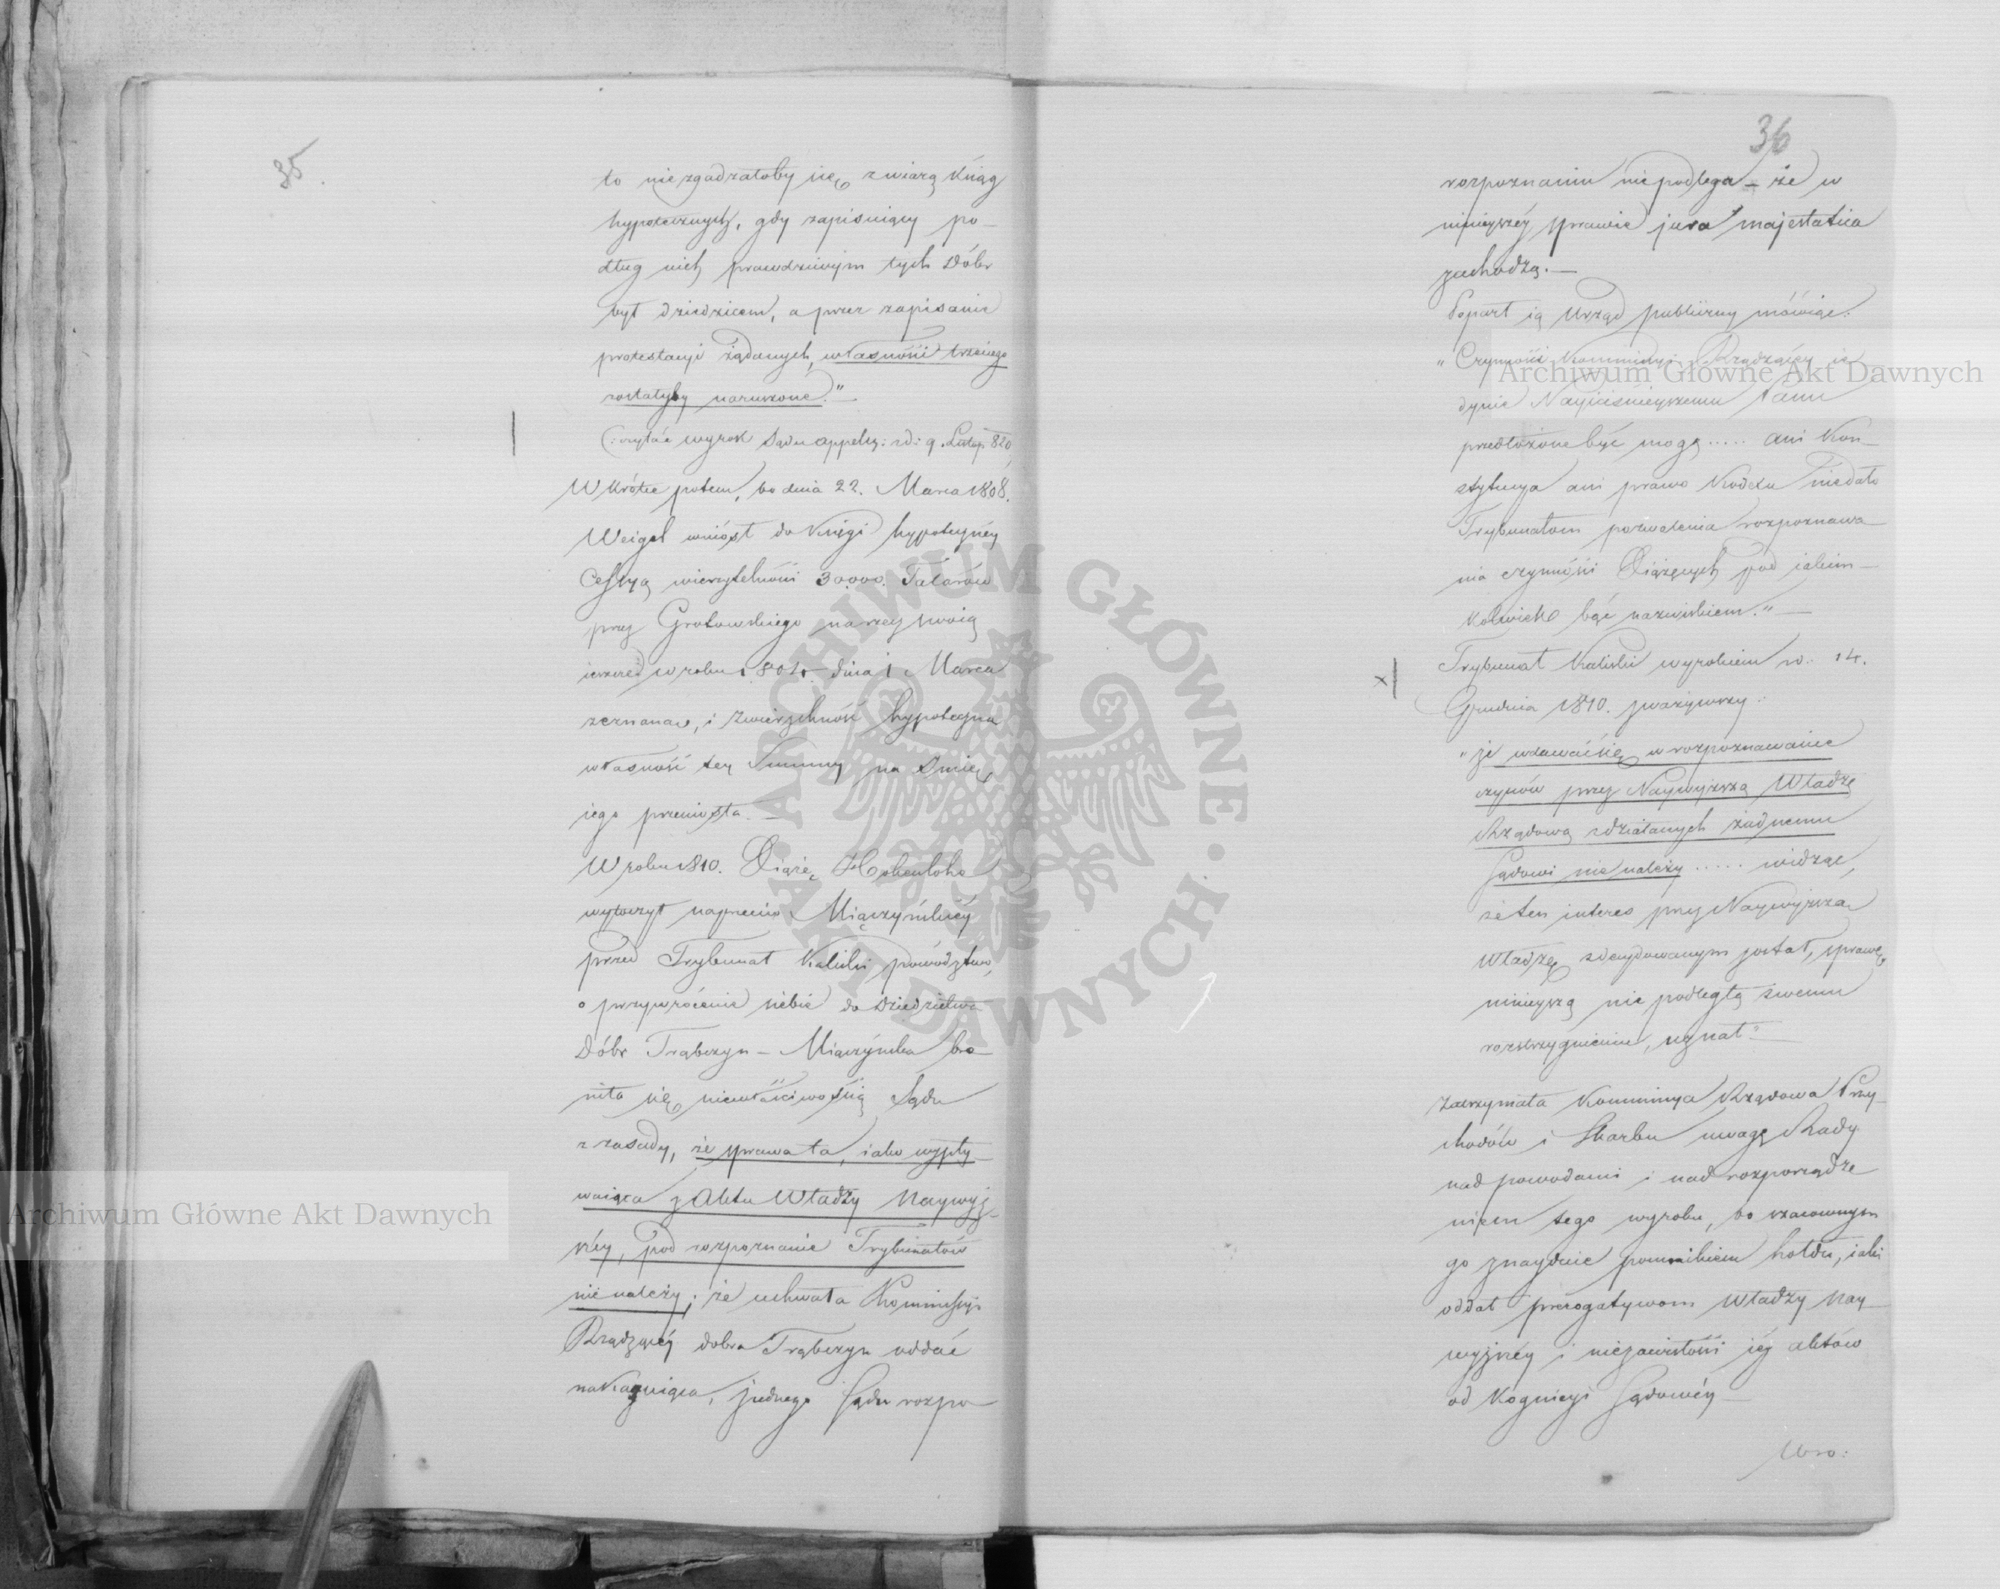 35.
to nie zgadzałoby się z wiarą Xiąg
hypotecznych, gdy zapisuiący po-
dług nich prawdziwym tych Dóbr
był dziedzicem, a przez zapisanie
protestacyi żądanych, własności trzeciego
zostałyby naruszone."—
(: czytać wyrok Sądu appellq: z d: 9. Listop 820
Wkrótce potem, bo dnia 22. Marca 1808.
Weigel wniósł do Księgi hypoteczney
Cessyą wierzytelności 30,000. Talarów
przez Grotowskiego na rzecz swoią
ieszcze w roku 1804. dnia 1 Marca
zeznaną, i Zwierzchność hypoteczna
własność tey Summy na Imię
iego przeniosła.—
W roku 1810. Xiąże Hohenlohe
wytoczył naprzeciw Miączyńskiéy
przed Trybunał Kaliski powództwo,
o przywrócenie siebie do Dziedzictwa
Dóbr Trąbczyn — Miączyńska bro-
niła się niewłaściwością Sądu
z zasady, że sprawa ta, iako wypły-
waiąca z Aktu Władzy Naywyż-
széy, pod rozpoznanie Trybunałów
nie należy; że uchwała Kommissyi
Rządzącéy dobra Trąbczyn oddać
nakazuiąca, żadnego Sądu rozpo-
36
rozpoznaniu nie podlega — że w
ninieyszéy sprawie jura majestatica
zachodzą.—
Poparł ią Urząd publiczny mówiąc:
"Czynności Kommissyi Rządzącéy ie-
dynie Nayiaśnieyszemu Panu
przedłożone być mogą ..... ani Kon-
stytucya ani prawo Kodexu niedało
Trybunałom pozwolenia rozpoznawa-
nia czynności Rządzących pod iakim-
kolwiek bądź nazwiskiem."—
x Trybunał Kaliski wyrokiem z d: 14.
Grudnia 1810. zważywszy:
"że wdawać się w rozpoznawanie
czynów przez Naywyższą Władzę
Rządową zdziałanych żadnemu
Sądowi nie należy ..... widząc,
że ten interes przez Naywyższą
Władzę zdecydowanym został, sprawę
ninieyszą nie podległą swemu
rozstrzygnieniu, uznał"—
Zatrzymała Kommissya Rządowa Przy-
chodów i Skarbu uwagę Rady
nad powodami i nad rozporządze
niem tego wyroku, bo szacownym
go znayduie pomnikiem hołdu, iaki
oddał prerogatywom Władzy Nay-
wyższéy i niezawisłości iéy aktów
od Kognicyi Sądowéy —
Archiwum Główne Akt Dawnych
Archiwum Główne Akt Dawnych
ARCHIWUM GŁÓWNE · AKT DAWNYCH ·